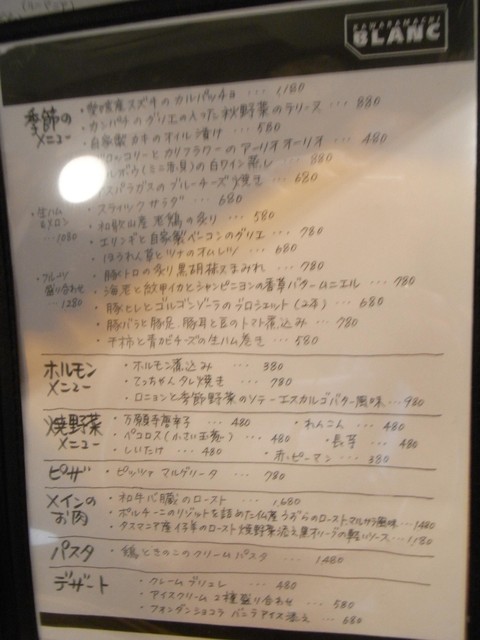 BLANC
季節のメニュー
・愛媛産スズキのカルパッチョ … 1180
・カンパチのグリエの入った秋野菜のテリーヌ … 880
・自家製カキのオイル漬け … 580
ブロッコリーとカリフラワーのアーリオオーリオ … 480
の白ワイン蒸し … 880
アスパラガスのブルーチーズ焼き … 680
・スティックサラダ … 680
・和歌山産 老鶏の炙り … 580
・エリンギと自家製ベーコンのグリエ … 780
・ほうれん草とツナのオムレツ … 680
・豚トロの炙り黒胡椒スまみれ … 780
・海老と紋甲イカとシャンピニョンの香草バタームニエル … 780
・豚ヒレとゴルゴンゾーラのブロシェット (2本) … 680
・豚バラと豚足、豚耳と豆のトマト煮込み … 780
・干柿と青カビチーズの生ハム巻き … 580
・生ハム&メロン … 1080
・フルーツ盛り合わせ … 1280
ホルモンメニュー
・ホルモン煮込み … 380
・てっちゃんタレ焼き … 780
・ロニョンと季節野菜のソテーエスカルゴバター風味 … 980
焼野菜メニュー
・万願寺唐辛子 … 480
・れんこん … 480
・ペコロス (小さい玉葱) … 480
・長芋 … 480
・しいたけ … 480
・赤ピーマン … 380
ピザ
・ピッツァ マルゲリータ … 780
メインのお肉
・和牛心臓のロースト … 1,680
・ポルチーニのリゾットを詰めた仏産うずらのロースト,マルサラ風味 … 1480
・タスマニア産仔羊のロースト 焼野菜添え 黒オリーブの軽いソース … 1580
パスタ
・鶏ときのこのクリームパスタ … 1480
デザート
・クレームブリュレ … 480
・アイスクリーム 2種盛り合わせ … 580
・フォンダンショコラ バニラアイス添え … 680